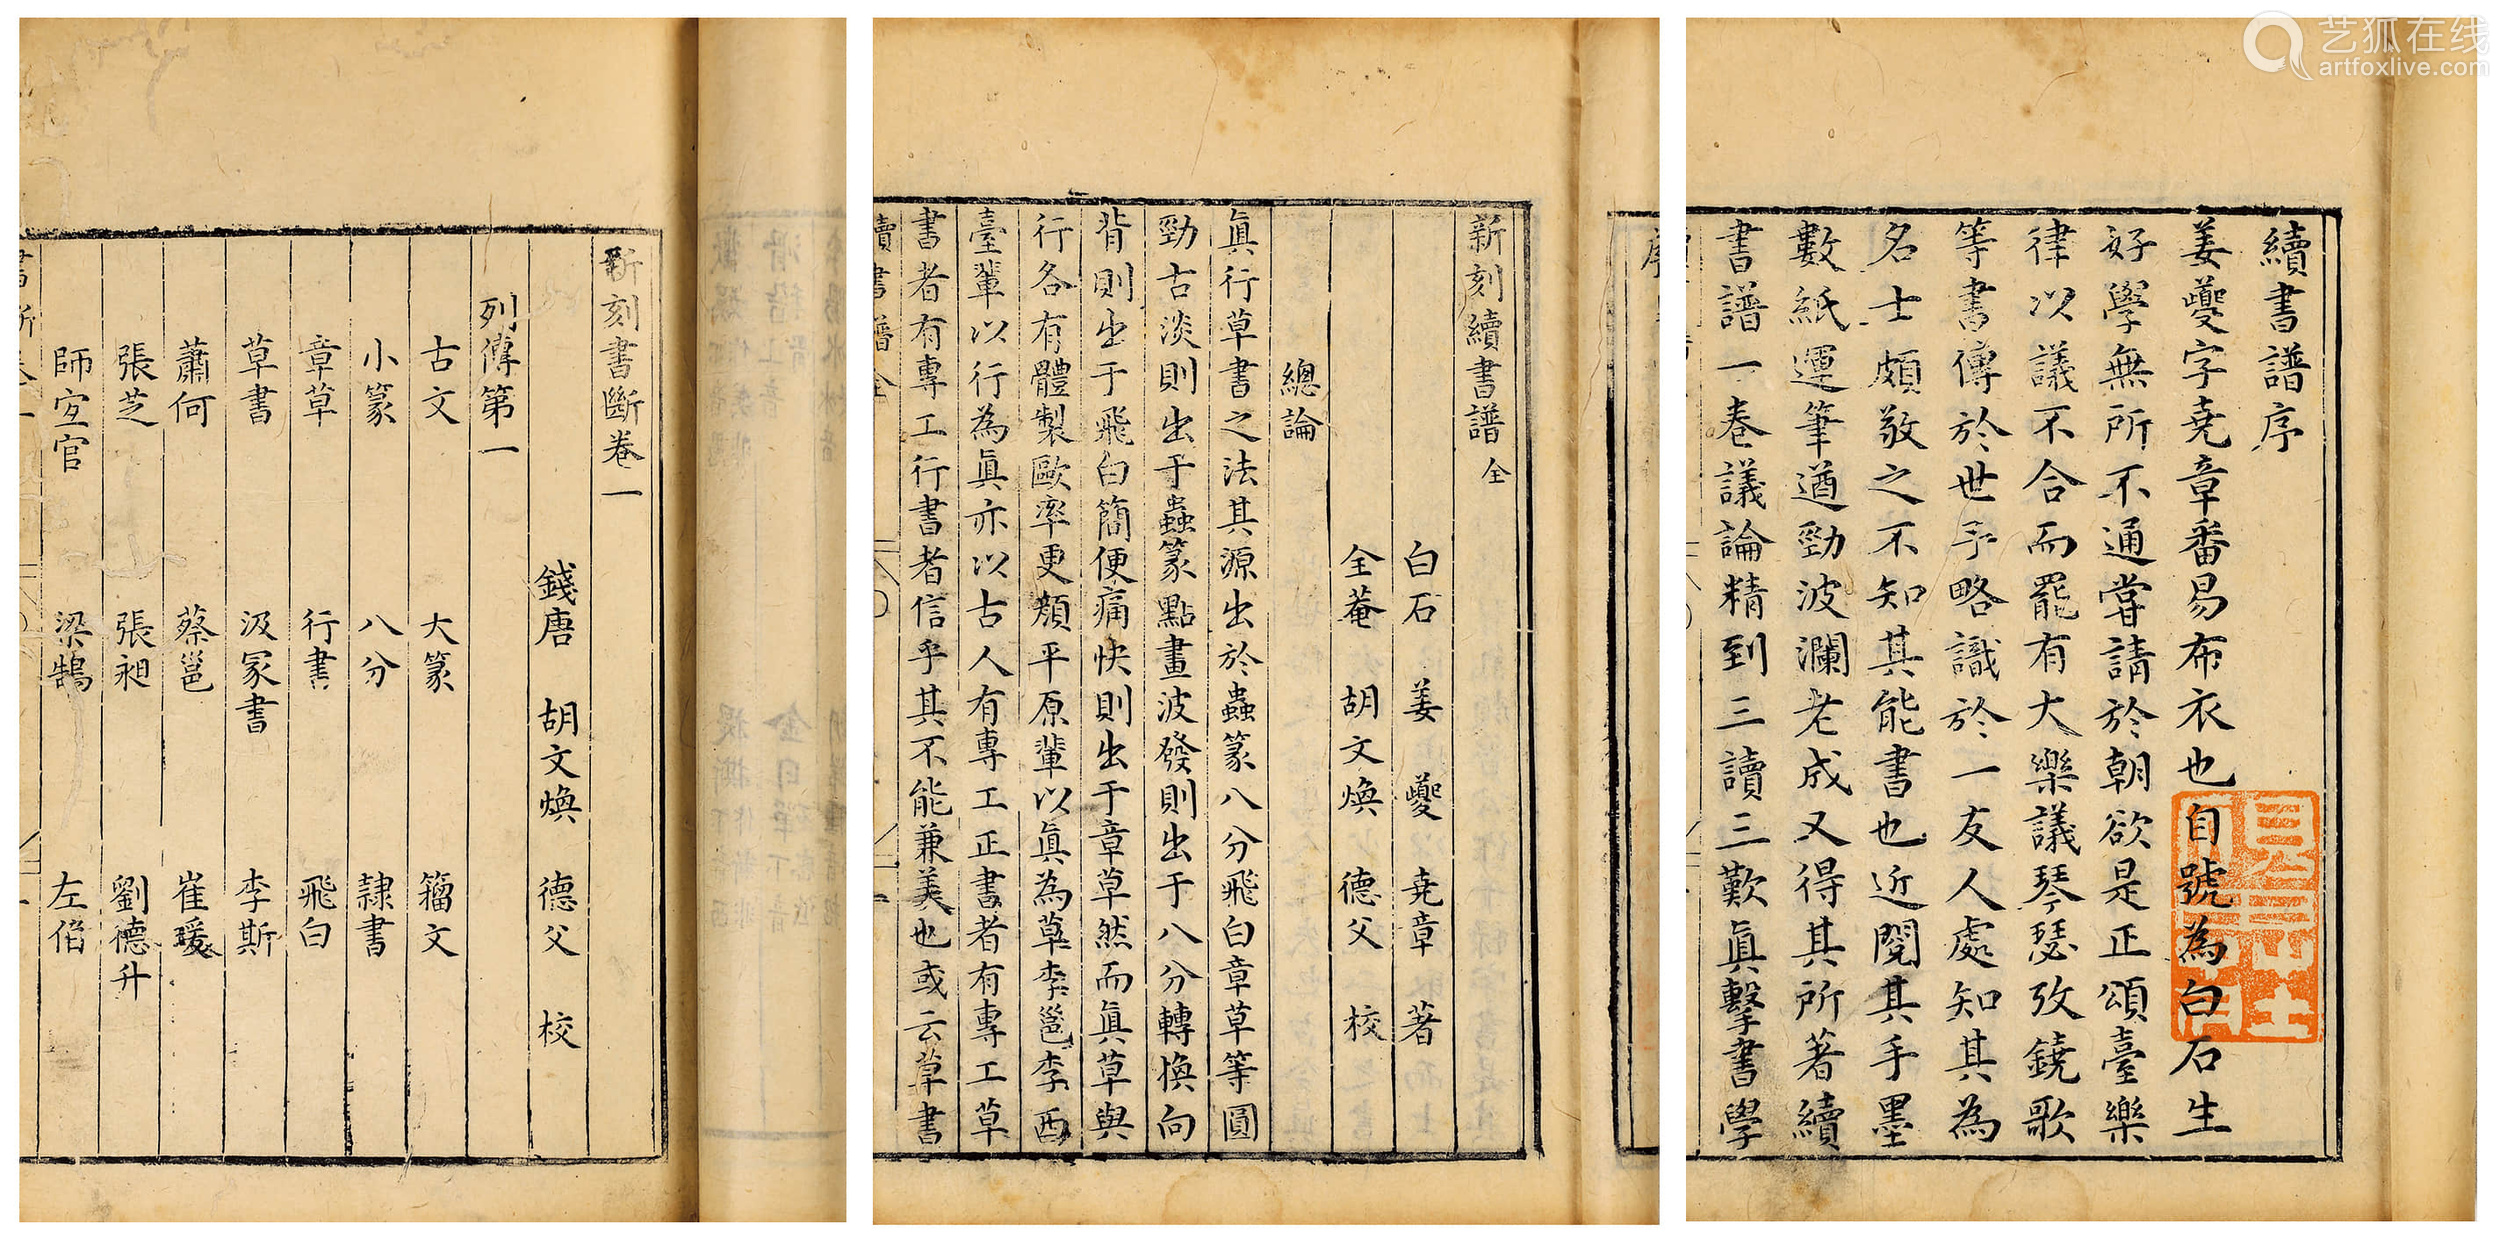 續書譜序
姜夔字堯章番昜布衣也自號為白石生
好學無所不通嘗請於朝欲是正頌臺樂
律以議不合而罷有大樂議琴瑟攷鐃歌
等書傳於世予略識於一友人處知其為
名士頗敬之不知其能書也近閱其手墨
數紙運筆遒勁波瀾老成又得其所著續
書譜一卷議論精到三讀三歎真擊書學
新刻續書譜 全
白石 姜夔 堯章 著
全菴 胡文煥 德父 校
總論
真行草書之法其源出於蟲篆八分飛白章草等圓
勁古淡則出于蟲篆點畫波發則出于八分轉換向
背則出于飛白簡便痛快則出于章草然而真草與
行各有體製歐率更顏平原輩以真為草李邕李西
臺輩以行為真亦以古人有專工正書者有專工草
書者有專工行書者信乎其不能兼美也或云草書
續書譜 全
新刻書斷卷一
錢唐 胡文煥 德父 校
列傳第一
古文 大篆 籀文
小篆 八分 隸書
章草 行書 飛白
草書 汲冢書 李斯
蕭何 蔡邕 崔瑗
張芝 張昶 劉德升
師宜官 梁鵠 左伯
書斷卷一
艺狐在线
artfoxlive.com